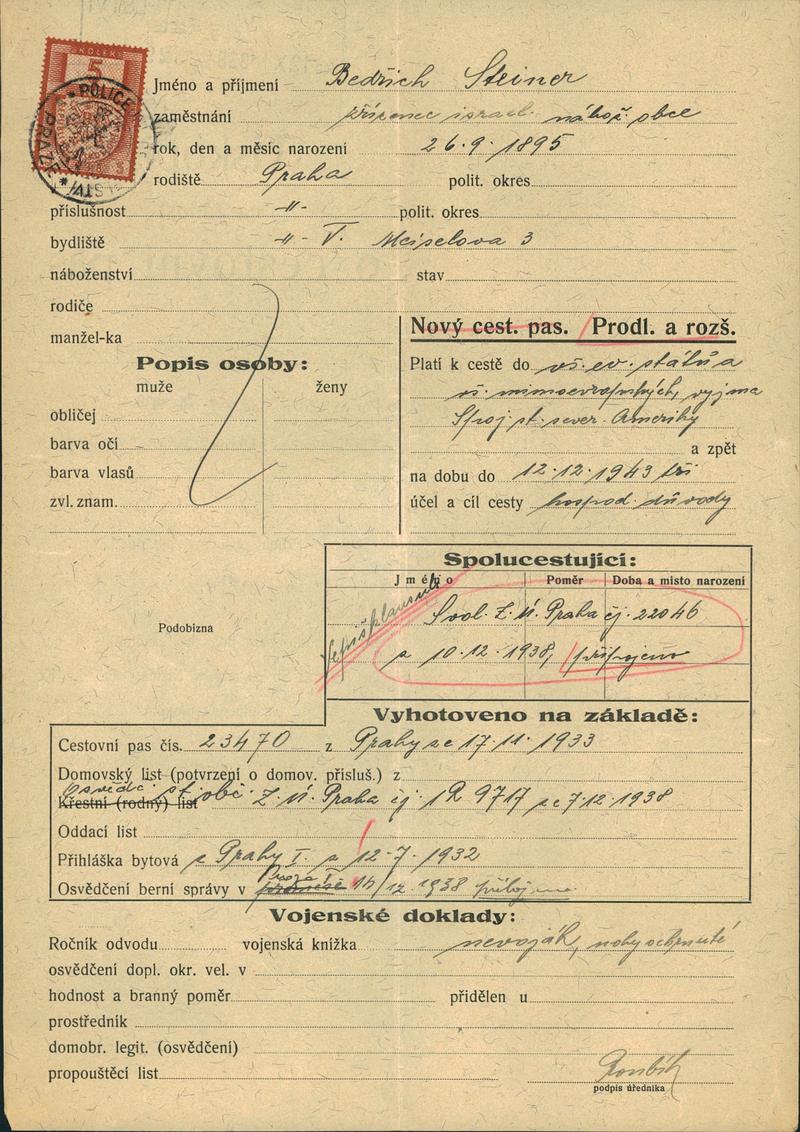 KOLEK
5
POLICE
PRAZE
Jméno a příjmení Bedřich Steiner
zaměstnání zřízenec israel. nábož. obce
rok, den a měsíc narození 26.9.1895
rodiště Praha polit. okres
příslušnost -"- polit. okres
bydliště -"- V. Meiselova 3
náboženství stav
rodiče
manžel-ka
Nový cest. pas. / Prodl. a rozš.
Popis osoby:
muže ženy
obličej
barva očí
barva vlasů
zvl. znam.
Platí k cestě do vš. ev. států a
vš. mimoevropských, vyjma
Spoj. st. sever. Ameriky
a zpět
na dobu do 12.12.1943
účel a cíl cesty hospod. důvody
Podobizna
Spolucestující:
Jméno Poměr Doba a místo narození
Svol. Z. ú. Praha čj. 22046
z 10.12.1938, připojeno
Vyhotoveno na základě:
Cestovní pas čís. 23470 z Prahy ze 17.11.1933
Domovský list (potvrzení o domov. přísluš.) z
osvědč. st. obč.
Křestní (rodný) list Z. ú. Praha čj. 1R 9717 ze 7.12.1938
Oddací list
Přihláška bytová z Prahy I. z 12.7.1932
Praha I
Osvědčení berní správy v 14/12.1938
Vojenské doklady:
Ročník odvodu vojenská knížka nevoják, nohy ochrnuté
osvědčení dopl. okr. vel. v
hodnost a branný poměr přidělen u
prostředník
domobr. legit. (osvědčení)
propouštěcí list
podpis úředníka